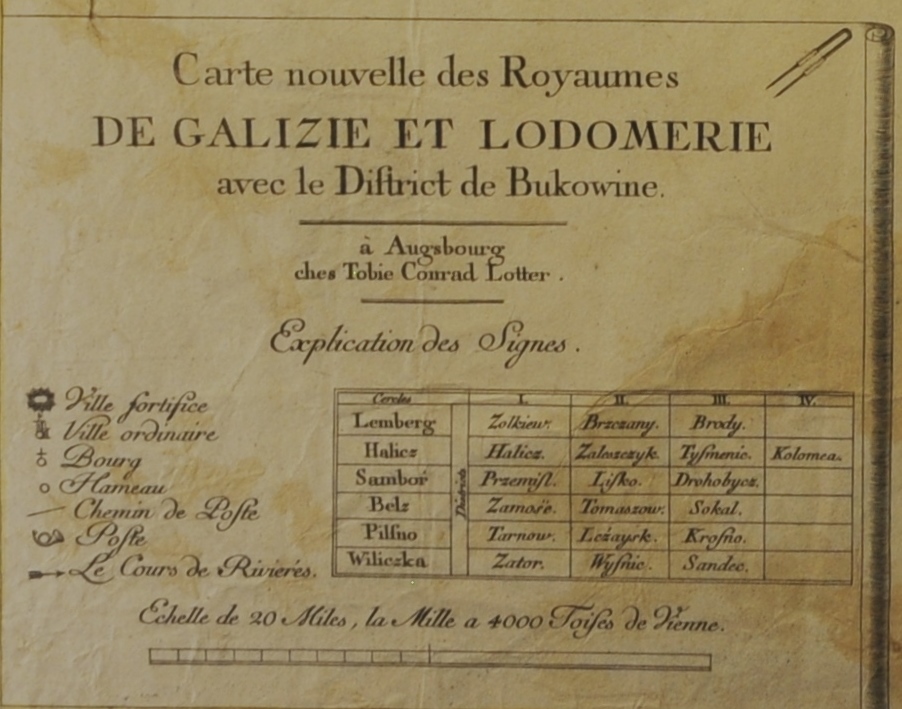 Carte nouvelle des Royaumes
DE GALIZIE ET LODOMERIE
avec le Diſtrict de Bukowine.
à Augsbourg
ches Tobie Conrad Lotter.
Explication des Signes.
Ville fortifice
Ville ordinaire
Bourg
Hameau
Chemin de Poſte
Poſte
Le Cours de Rivierés.
Cercles I. II. III. IV.
Districts
Lemberg Zolkiew. Brzezany. Brody.
Halicz Halicz. Zaleszczyk. Tyſmenic. Kolomea.
Sambor Przemiſl. Liſko. Drohobycz.
Belz Zamośc. Tomaszow. Sokal.
Pilſno Tarnow. Leżayſk. Kroſno.
Wiliczka Zator. Wyſnic. Sandec.
Echelle de 20 Miles, la Mille a 4000 Toiſes de Vienne.